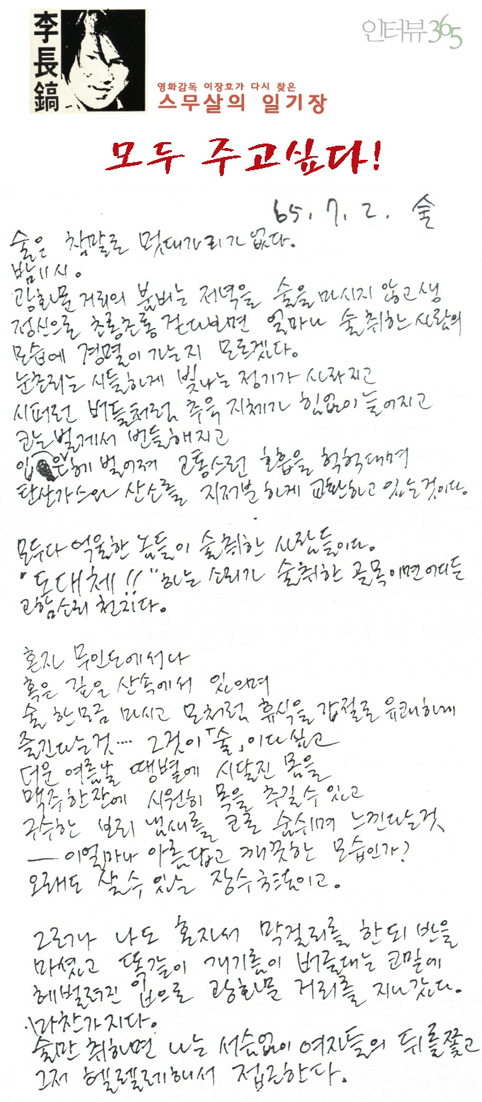 李長鎬
인터뷰365
영화감독 이장호가 다시 찾은
스무살의 일기장
모두 주고싶다!
65. 7. 2. 술
술은 참말로 멋대가리가 없다.
밤 11시.
광화문 거리의 붐비는 저녁을 술을 마시지 않고 생
정신으로 초롱초롱 걷다보면 얼마나 술취한 사람의
모습에 경멸이 가는지 모르겠다.
눈초리는 시들하게 빛나는 정기가 사라지고
시퍼런 버들처럼 추욱 지체가 힘없이 늘어지고
코는 벌게서 번들해지고
입은 헤 벌어져 고통스런 호흡을 헉헉대며
탄산가스와 산소를 지저분하게 교환하고 있는것이다.
모두다 억울한 놈들이 술취한 사람들이다.
"도대체!!" 하는 소리가 술취한 골목이면 어디든
고함소리 천지다.
혼자 무인도에서나
혹은 깊은 산속에서 있으며
술 한모금 마시고 모처럼 휴식을 갑절로 유쾌하게
즐긴다는것… 그것이「술」이다 싶고
더운 여름날 땡볕에 시달린 몸을
맥주 한잔에 시원히 목을 추길 수 있고
구수한 보리 냄새를 코로 숨쉬며 느낀다는것
— 이 얼마나 아름답고 깨끗한 모습인가?
오래도 살 수 있는 장수 이고.
그러나 나도 혼자서 막걸리를 한되 반을
마셨고 똑같이 개기름이 번들대는 코밑에
헤벌려진 입으로 광화문 거리를 지나갔다.
마찬가지다.
술만 취하면 나는 서슴없이 여자들의 뒤를 쫓고
그저 헬렐레해서 접근한다.